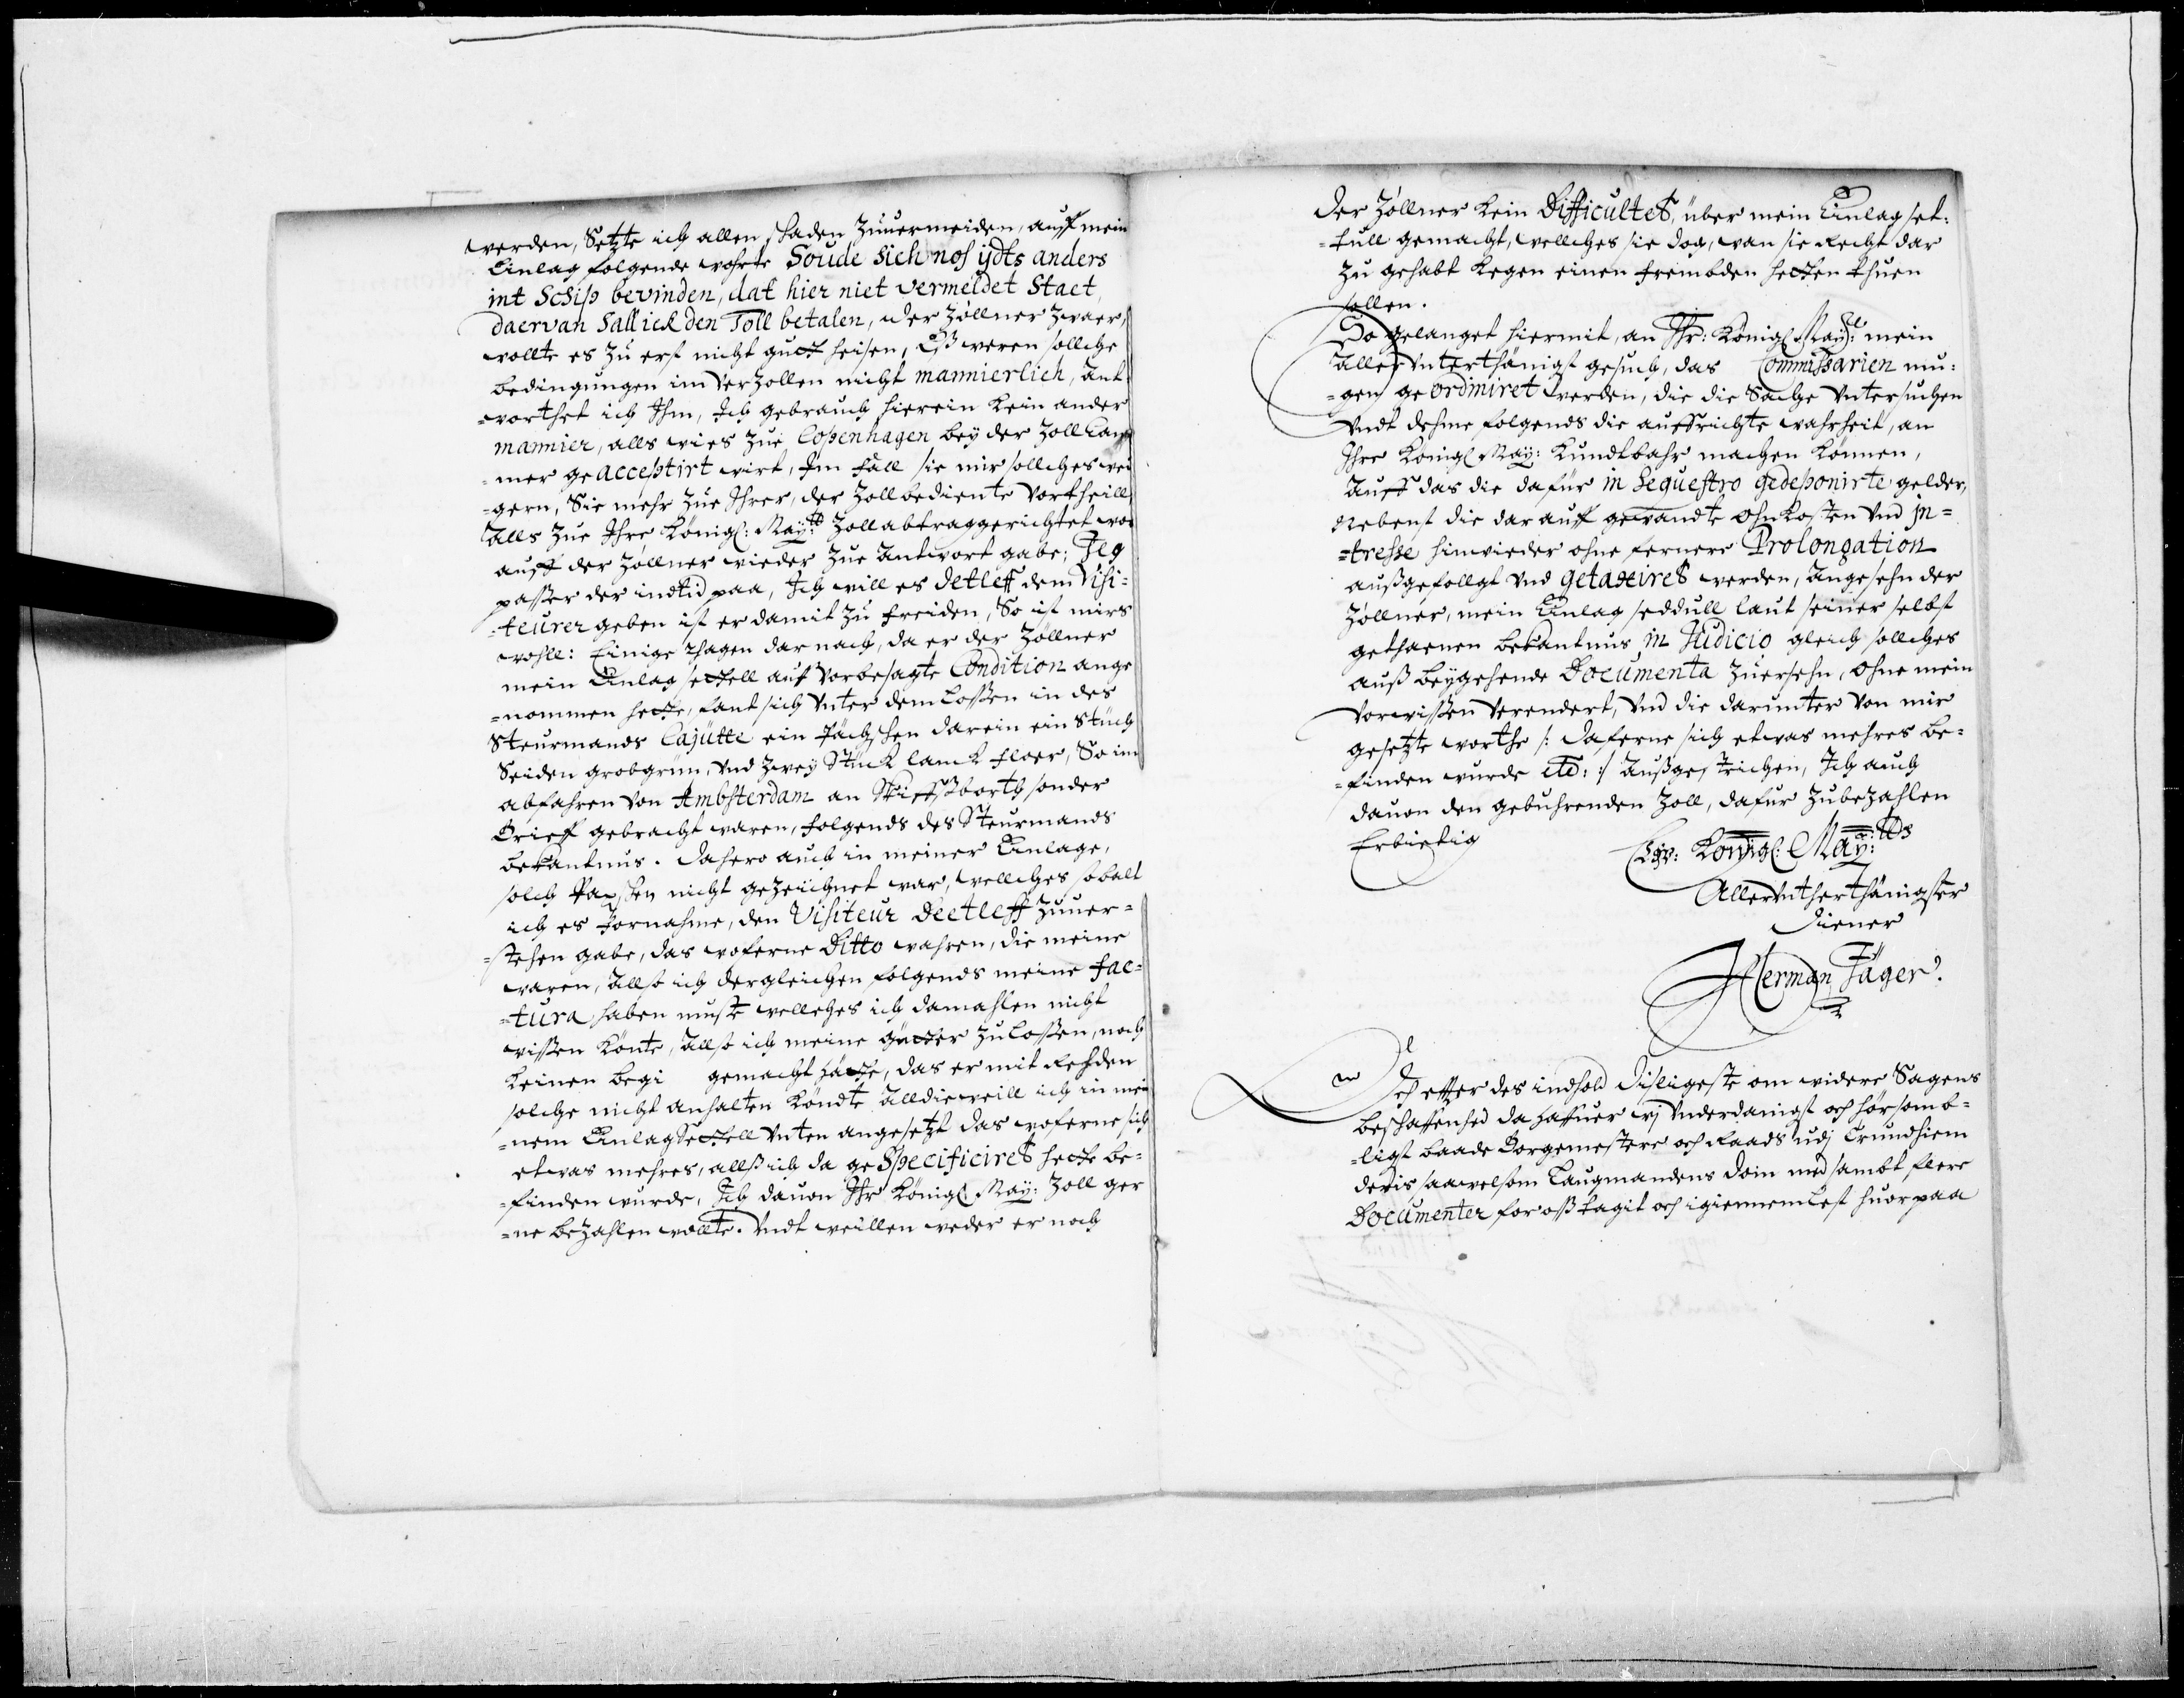 werden, Setzte ich allen schaden zuuermeiden, auff mein
Einlag folgende wohrte Soude sich nof ijdts anders
int Schip bevinden, dat hier niet vermeldet Staet,
daervan Sall ick den Toll betalen, der Zöllner zwaer,
wollte es zu erst nicht gutt heisen, Eß weren sollche
bedingungen im verzollen nicht mannierlich, Ant
=worthet ich Ihm, Ich gebrauch hierein kein ander
mannier, alls wies zue Copenhagen bey der Zoll Cam
=mer ge acceptirt wirt, Im fall sie mir sollches wei
=gern, Sie mehr zue Ihrer, der Zollbediente Vortheill
Alls zue Ihre Königl: May:tt Zoll abtrag gerichtet wor
auff der Zöllner wieder zue Antwort gabe; Jeg
passer der indtid paa, Ich will es Detleff dem Visi=
=teurer geben ist er damit zu freiden, So ist mirs
wohll: Einige thagen dar nach, da er der Zöllner
mein Einlag settell auf vorbesagte Condition ange
=nommen hette, fant sich Vnter dem Lossen in des
Steurmands Cajütte ein Päckschen darein ein Stück
Seiden grobgrün, Vnd zwey Stück lanck floer, So im
abfahren von Ambsterdam an Schiffßborth sonder
Brieff gebracht waren, folgends des Steurmands
bekantnus. Dahero auch in meiner Einlage,
solch Packschen nicht gezeichnet war, wellches sobalt
ich es Vornahme, den Visiteur Deetleff zuuer=
=stehen gabe, das woferne Ditto wahren, die meine
waren, Allso ich dergleichen folgends meine fac=
=tura haben muste wellches ich damahlen nicht
wissen könte, Allso ich meine gütter zulossen, noch
keinen begi gemacht hätte, das er mit Rehden
solche nicht anhalten köndte Alldieweill ich in mei
=nem Einlag Settell Vnten angesetzt das woferne sich
etwas mehres, allß ich da ge Specificiret hette be=
=finden wurde, Ich dauon Ihr Königl May: Zoll ger
=ne bezahlen wollte. Vndt weillen weder er noch
der Zöllner kein Difficultet, über mein Einlag set=
=tull gemacht, wellches sie doch, wan sie Recht dar
zu gehabt kegen einen frembden hetten thuen
sollen.
So gelanget hiermit, an Ihr: Königl May:tt mein
Aller Vnterthänigst gesuch, das Commissarien mu=
=gen ge ordiniret werden, die die Sache Vntersuchen
Vndt dehme folgends die auffrichte wahrheit, an
Ihre Königl May: kundtbahr machen können,
Auff das die dafür in Sequestro gedeponirte gelder,
Nebenst die darauff gewandte ohnkosten Vnd in=
=tresse hinwieder ohne fernere Prolongation
außgefollgt Vnd getaxiret werden, Angesehn der
Zöllner, mein Einlag seddull laut seiner selbst
gethaenen bekantnus in Judicio gleich sollches
auß beygehende Documenta zuersehn, ohne mein
Vorwissen Verendert, Vnd die darunter von mir
gesetzte worthe /: daferne sich etwas mehres be=
=finden wurde etc: :/ Außgestrichen, Ich auch
dauon den gebuhrenden Zoll, dafür zubezahlen
Erbietig
Ew: Königl: May:tts
Aller Vntherthänigster
Diener
Herman Jäger.
Der effter des indhold disligeste om widere Sagens
beschaffenhed da haffuer wj Vnderdanigst och hørsomb=
=ligst baade Borgemestere och Raads udj Trundhiem
deris saawelsom Laugmandens dom med sambt flere
Documenter for oß tagit och igiennemlest huor paa